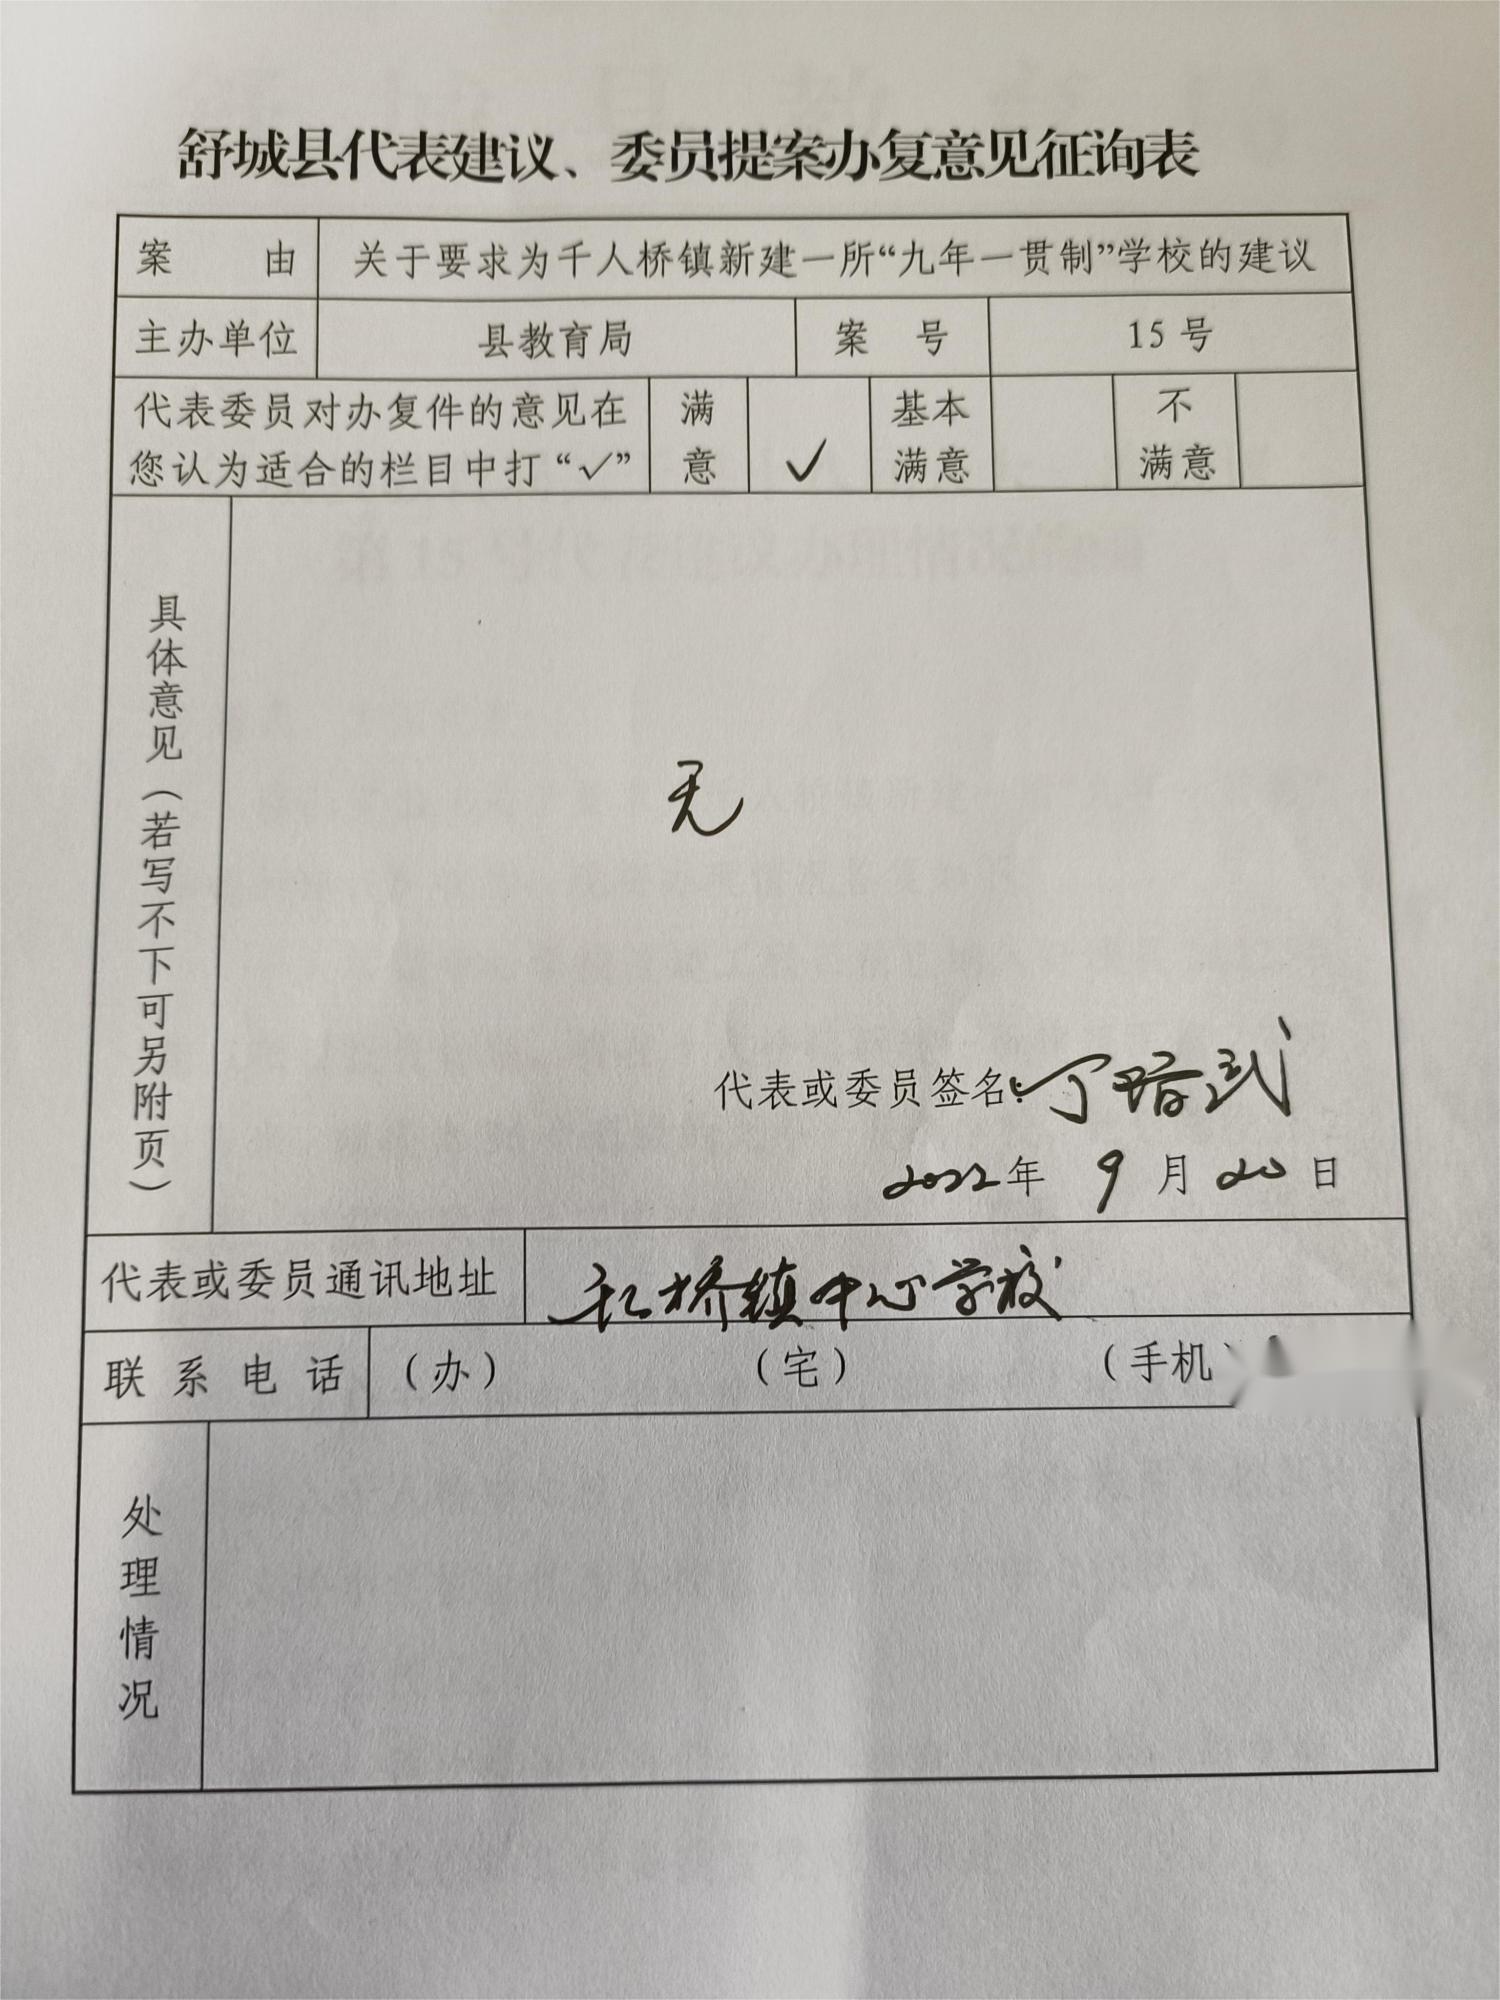 舒城县代表建议、委员提案办复意见征询表
案 由 关于要求为千人桥镇新建一所“九年一贯制”学校的建议
主办单位 县教育局 案 号 15号
代表委员对办复件的意见在您认为适合的栏目中打“✓” 满意 ✓ 基本满意 不满意
具体意见（若写不下可另附页）
无
代表或委员签名：丁
2022年 9 月 20 日
代表或委员通讯地址 桥镇中心学校
联系电话 （办） （宅） （手机）
处理情况